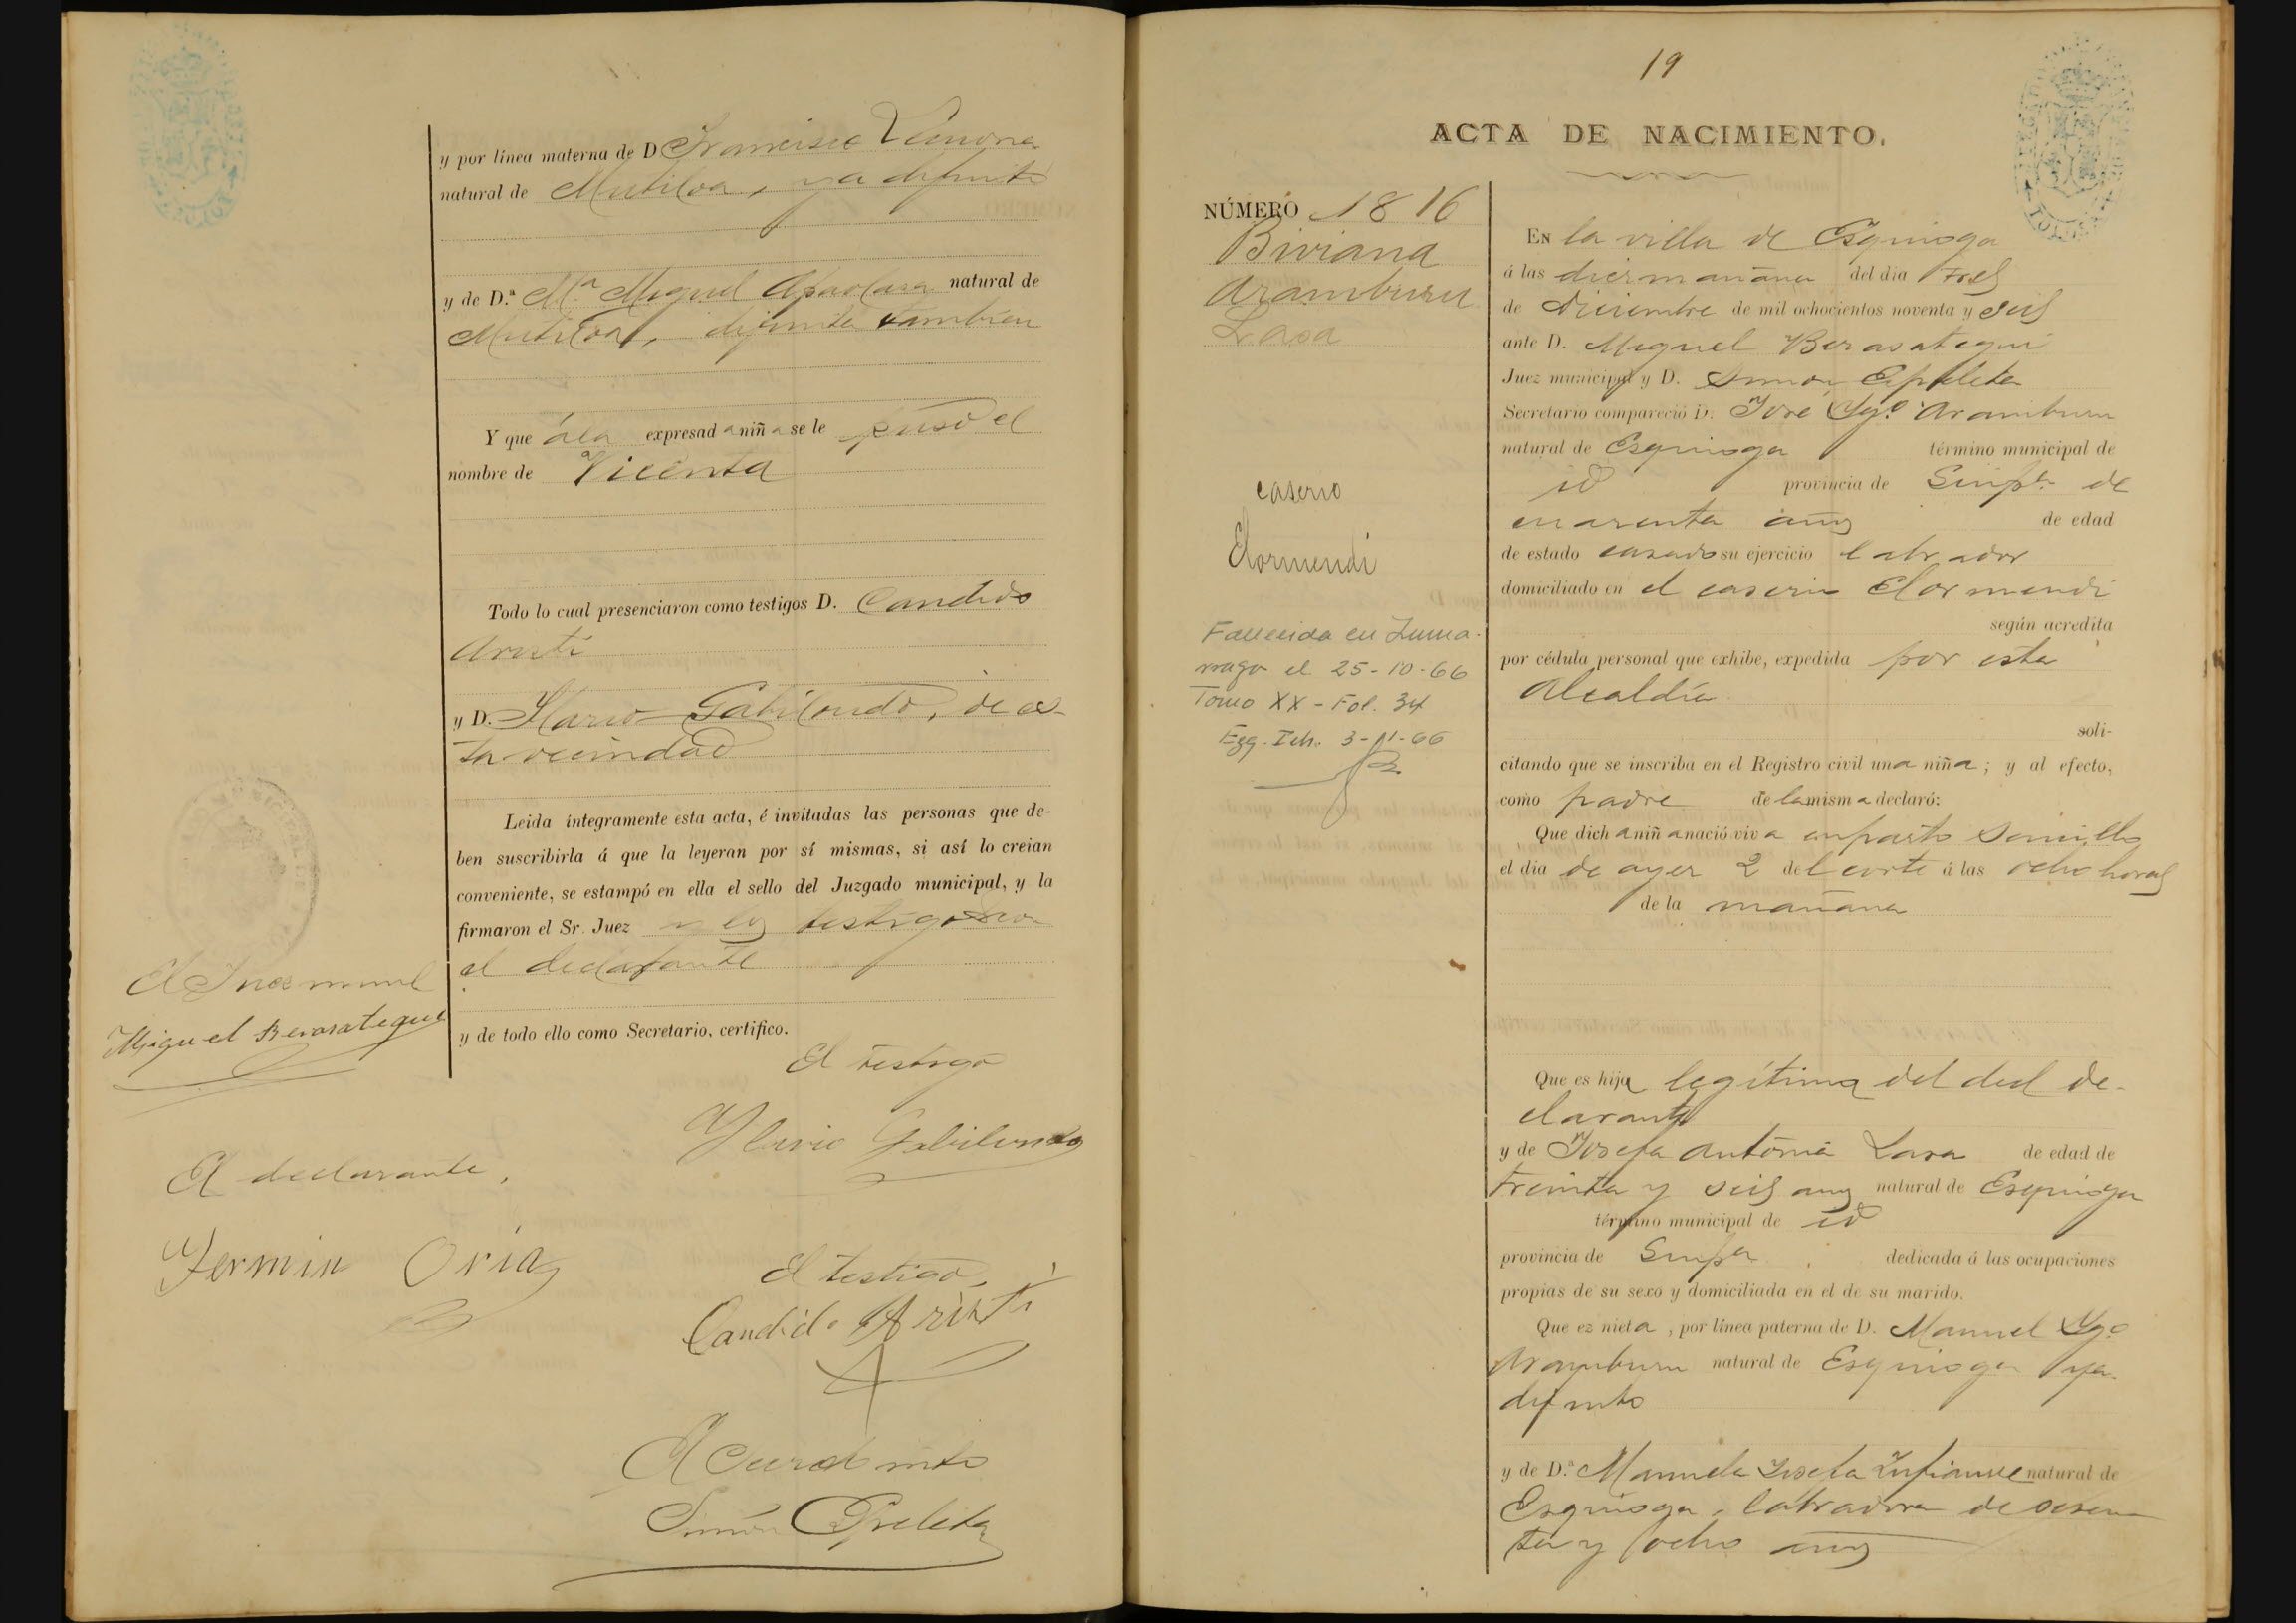 y por línea materna de D Francisco
natural de Mutiloa, ya difunto
y de D.ª M.ª Miguel Apaolaza natural de
Mutiloa, difunta tambien
Y que á la expresad a niñ a se le puso el
nombre de Vicenta
Todo lo cual presenciaron como testigos D. Candido
Aristi
y D. Ilario Gabilondo, de es-
ta vecindad
Leida íntegramente esta acta, é invitadas las personas que de-
ben suscribirla á que la leyeran por sí mismas, si así lo creian
conveniente, se estampó en ella el sello del Juzgado municipal, y la
firmaron el Sr. Juez y los testigos con
el declarante
y de todo ello como Secretario, certifico.
El Juez munl
Miguel Berasategui
El testigo
Ylario Gabilondo
El declarante,
Fermin Oria
El testigo,
Candido Aristi
Simón Apeleta
19
ACTA DE NACIMIENTO.
NÚMERO 1816
Biviana
Aramburu
Lasa
caserio
Elormendi
Fallecida en Zuma-
rraga el 25-10-66
Tomo XX - Fol. 34
Ezq. 3-11-66
En la villa de Ezquioga
á las diez mañana del dia tres
de Diciembre de mil ochocientos noventa y seis
ante D. Miguel Berasategui
Juez municipal y D. Simón Apeleta
Secretario compareció D. José Ygº Aramburu
natural de Ezquioga término municipal de
id provincia de Guipª de
cuarenta años de edad
de estado casado su ejercicio labrador
domiciliado en el caserio Elormendi
según acredita
por cédula personal que exhibe, expedida por esta
Alcaldía
soli-
citando que se inscriba en el Registro civil una niña; y al efecto,
como padre de la mism a declaró:
Que dich a niñ a nació viv a en parto sencillo
el dia de ayer 2 del corte á las ocho horas
de la mañana
Que es hija legítima del de-
clarante
y de Josefa Antonia Lasa de edad de
treinta y seis años natural de Ezquioga
término municipal de id
provincia de Guipª dedicada á las ocupaciones
propias de su sexo y domiciliada en el de su marido.
Que ez nieta, por línea paterna de D. Manuel Ygº
Aramburu natural de Ezquioga ya
difunto
y de D.ª Manuela Josefa natural de
Ezquioga, labradora de sesen
ta y ocho años